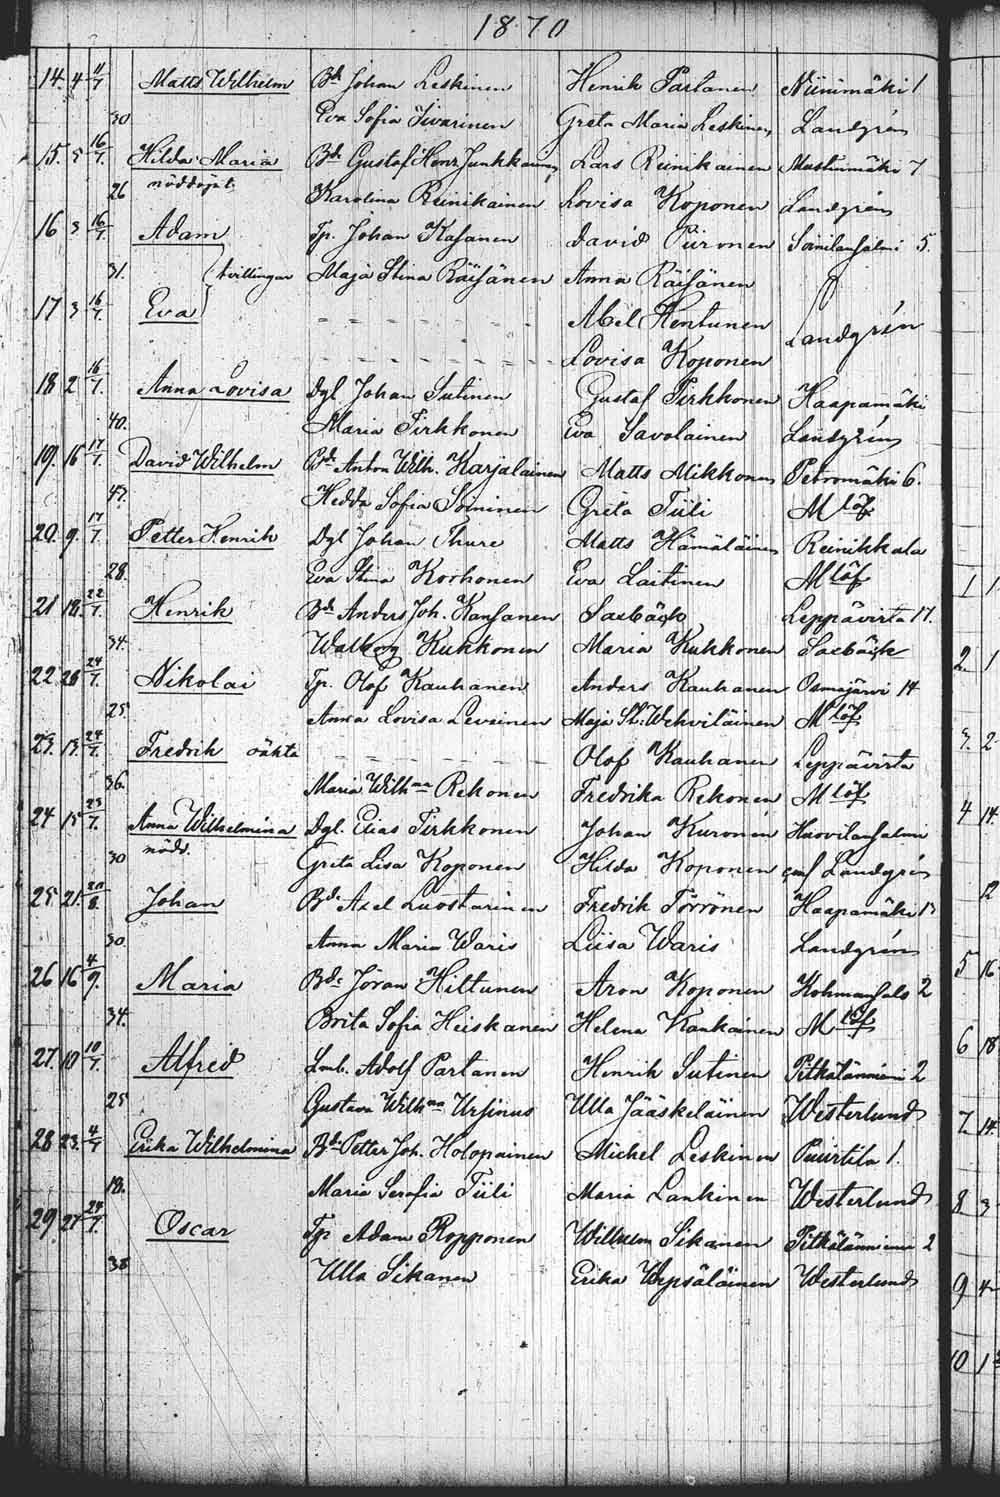 1870
14. 4 11/7 Matts Wilhelm Bd Johan Leskinen Henrik Partanen Niinimäki 1
30 Eva Sofia Iivarinen Greta Maria Leskinen Landgrén
15. 5 16/7. Hilda Maria Bd Gustaf Henr Junkkainen Lars Reinikainen Mustinmäki 7
nöddöpt. 26 Karolina Reinikainen Lovisa Koponen Landgrén
16 3 16/7. Adam Tp. Johan Kasanen David Piironen 5.
31. tvillingar Maja Stina Räisänen Anna Räisänen
17 3 16/7. Eva Abel Hentunen Landgrén
Lovisa Koponen
18 2 16/7. Anna Lovisa Dgl Johan Sutinen Gustaf Tirkkonen Haapamäki
40. Maria Tirkkonen Eva Savolainen Landgrén
19. 16 17/7. David Wilhelm Bd Anton Wilh. Karjalainen Matts Mikkonen Petromäki 6.
47. Hedda Sofia Sominen Greta Tiili M löf
20. 9. 17/7. Petter Henrik Dgl Johan Thure Matts Hämäläinen Reinikkala
28. Eva Stina Korhonen Eva Laitinen M löf
21 18. 22/7. Henrik Bd Anders Joh. Kansanen Saxbäck Leppävirta 17.
34. Walborg Kukkonen Maria Kukkonen Saxbäck
22 26 24/7. Nikolai Tp. Olof Kauhanen Anders Kauhanen Osmajärvi 14
25. Anna Lovisa Leveinen Maja St. Wehviläinen M löf
23. 13. 24/7. Fredrik oäkta Olof Kauhanen Leppävirta
36. Maria Wilhna Rekonen Fredrika Rekonen M löf
24 15 Anna Wilhelmina Dgl. Elias Tirkkonen Johan Kuronen Huovilansalmi
nödd. 30 Greta Lisa Koponen Hilda Koponen Landgrén
25 21. Johan Bd Axel Luostarinen Fredrik Törrönen Haapamäki
30. Anna Maria Waris Liisa Waris Landgrén
26 16 4/9. Maria Bd. Jöran Hiltunen Aron Koponen Kohmansalo 2
34. Brita Sofia Heiskanen Helena Kaukainen M löf
27. 10 10/7. Alfred Lmb. Adolf Partanen Henrik Sutinen Pitkälänniemi 2
25 Gustava Wilhna Ursinus Ulla Jääskeläinen Westerlund
28 23. 4/7 Erika Wilhelmina Bd. Petter Joh. Holopainen Michel Leskinen Puurtila 1.
18. Maria Serafia Tiili Maria Lankinen Westerlund
29. 27 24/7. Oscar Tp Adam Ropponen Wilhelm Sikanen Pitkälänniemi 2
38 Ulla Sikanen Erika Wepsäläinen Westerlund